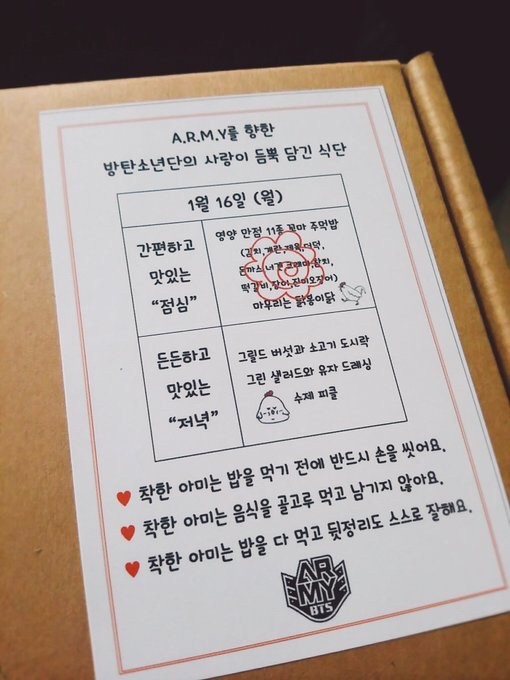 A.R.M.Y를 향한
방탄소년단의 사랑이 듬뿍 담긴 식단
1월 16일 (월)
간편하고
맛있는
“점심”
영양 만점 11종 꼬마 주먹밥
(김치,계란,제육,더덕,
돈까스 너겟,크래미,참치,
떡갈비,장어,진미오징어)
마무리는 닭봉이닭
든든하고
맛있는
“저녁”
그릴드 버섯과 소고기 도시락
그린 샐러드와 유자 드레싱
수제 피클
착한 아미는 밥을 먹기 전에 반드시 손을 씻어요.
착한 아미는 음식을 골고루 먹고 남기지 않아요.
착한 아미는 밥을 다 먹고 뒷정리도 스스로 잘해요.
AR
MY
BTS